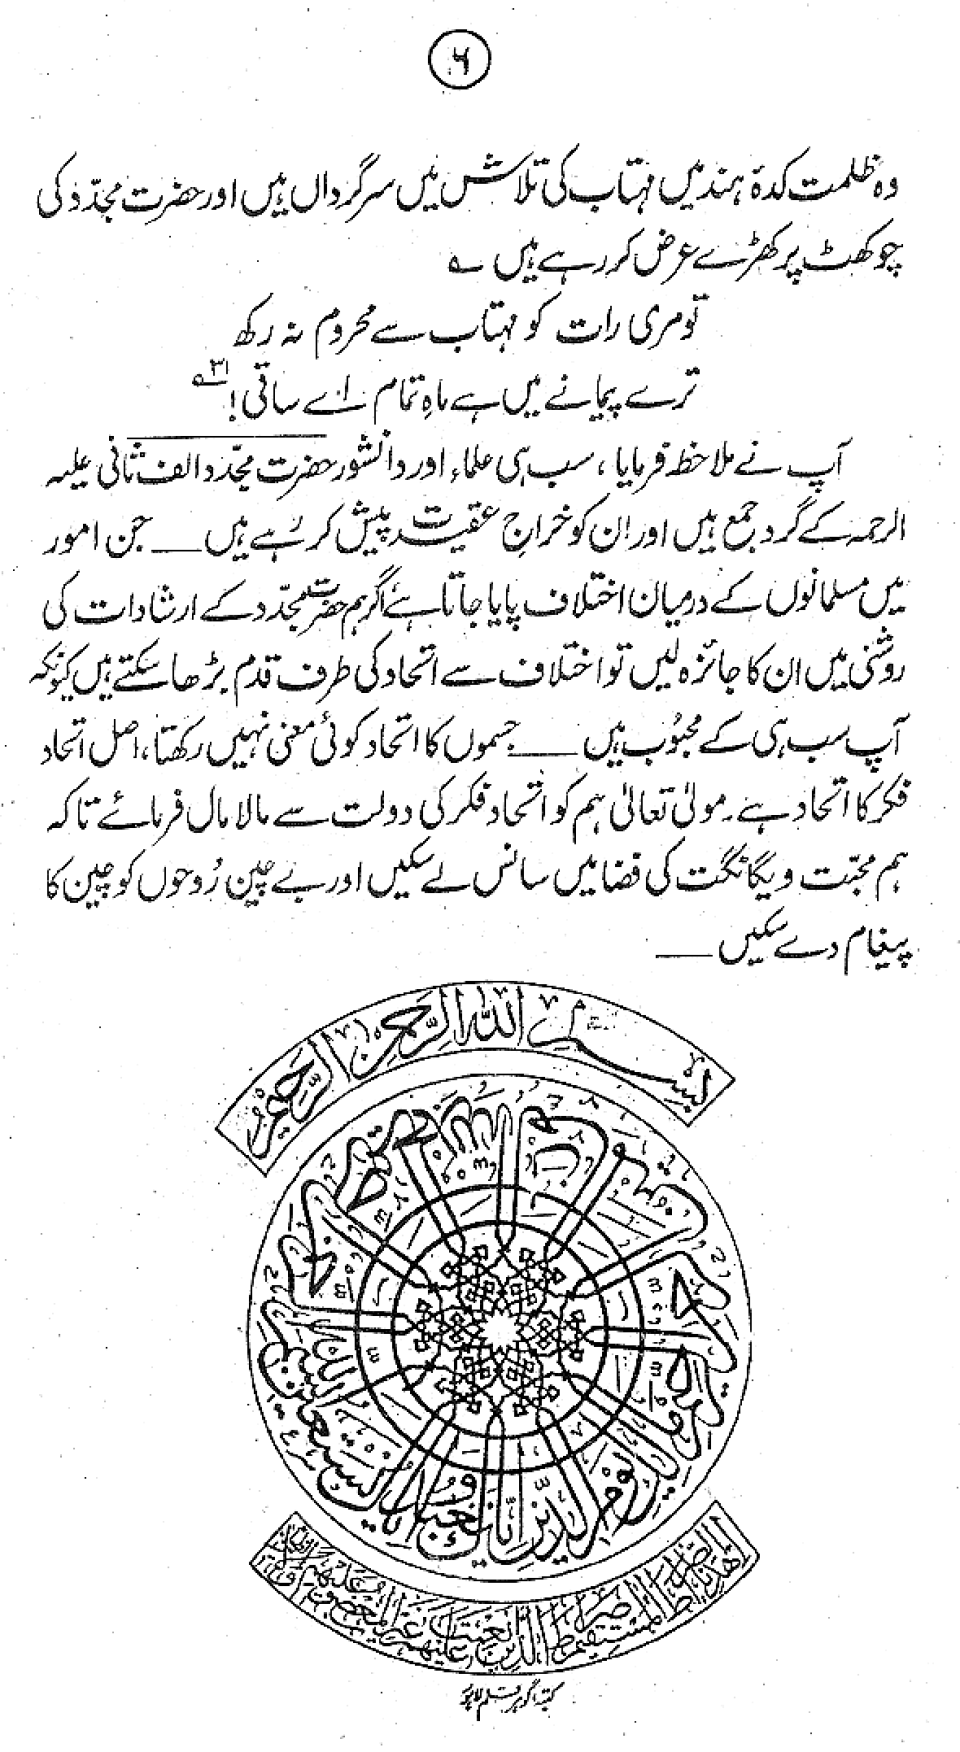 ۶
وہ ظلمت کدۂ ہند میں مہتاب کی تلاش میں سرگرداں ہیں اور حضرت مجدّد کی
چوکھٹ پر کھڑے عرض کر رہے ہیں ؎
تو مری رات کو مہتاب سے محروم نہ رکھ
ترے پیمانے میں ہے ماہِ تمام اے ساقی! ۳۱؎
آپ نے ملاحظہ فرمایا، سب ہی علماء اور دانشور حضرت مجدّد الف ثانی علیہ
الرحمہ کے گرد جمع ہیں اور ان کو خراجِ عقیدت پیش کر رہے ہیں ــــ جن امور
میں مسلمانوں کے درمیان اختلاف پایا جاتا ہے اگر ہم حضرت مجدّد کے ارشادات کی
روشنی میں ان کا جائزہ لیں تو اختلاف سے اتحاد کی طرف قدم بڑھا سکتے ہیں کیونکہ
آپ سب ہی کے محبُوب ہیں ــــ جسموں کا اتحاد کوئی معنی نہیں رکھتا، اصل اتحاد
فکر کا اتحاد ہے۔ مولیٰ تعالیٰ ہم کو اتحادِ فکر کی دولت سے مالا مال فرمائے تاکہ
ہم محبّت و یگانگت کی فضا میں سانس لے سکیں اور بے چین رُوحوں کو چین کا
پیغام دے سکیں ــــ
بسم اللہ الرحمن الرحیم
یوم الدین ایاک نعبد و ایاک نستعین
اھدنا الصراط المستقیم صراط الذین انعمت علیھم غیر المغضوب علیھم